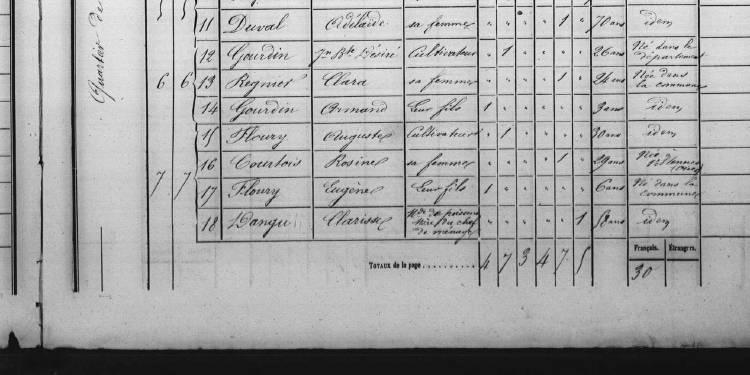 Quartier de
11 Duval Adélaïde sa femme " " " " 1 " 70 ans idem
12 Gourdin Jn Bte Désiré Cultivateur " 1 " " " " 26 ans Né dans le département
6 6 13 Regnier Clara sa femme " " " " 1 " 24 ans Née dans la commune
14 Gourdin Armand leur fils 1 " " " " " 3 ans idem
15 Floury Auguste Cultivateur " 1 " " " " 30 ans idem
16 Courtois Rosine sa femme " " " " 1 " 29 ans Née à
7 7 17 Floury Eugène leur fils 1 " " " " " 6 ans Né dans la commune
18 Dangu Clarisse Mde de poissons Mère du chef de ménage " " " " " 1 58 ans idem
Français. Étrangers.
Totaux de la page 4 7 3 4 7 5 30